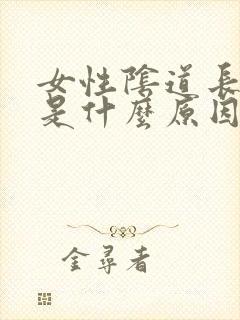 女性陰道長
是什麼原因
金尋者